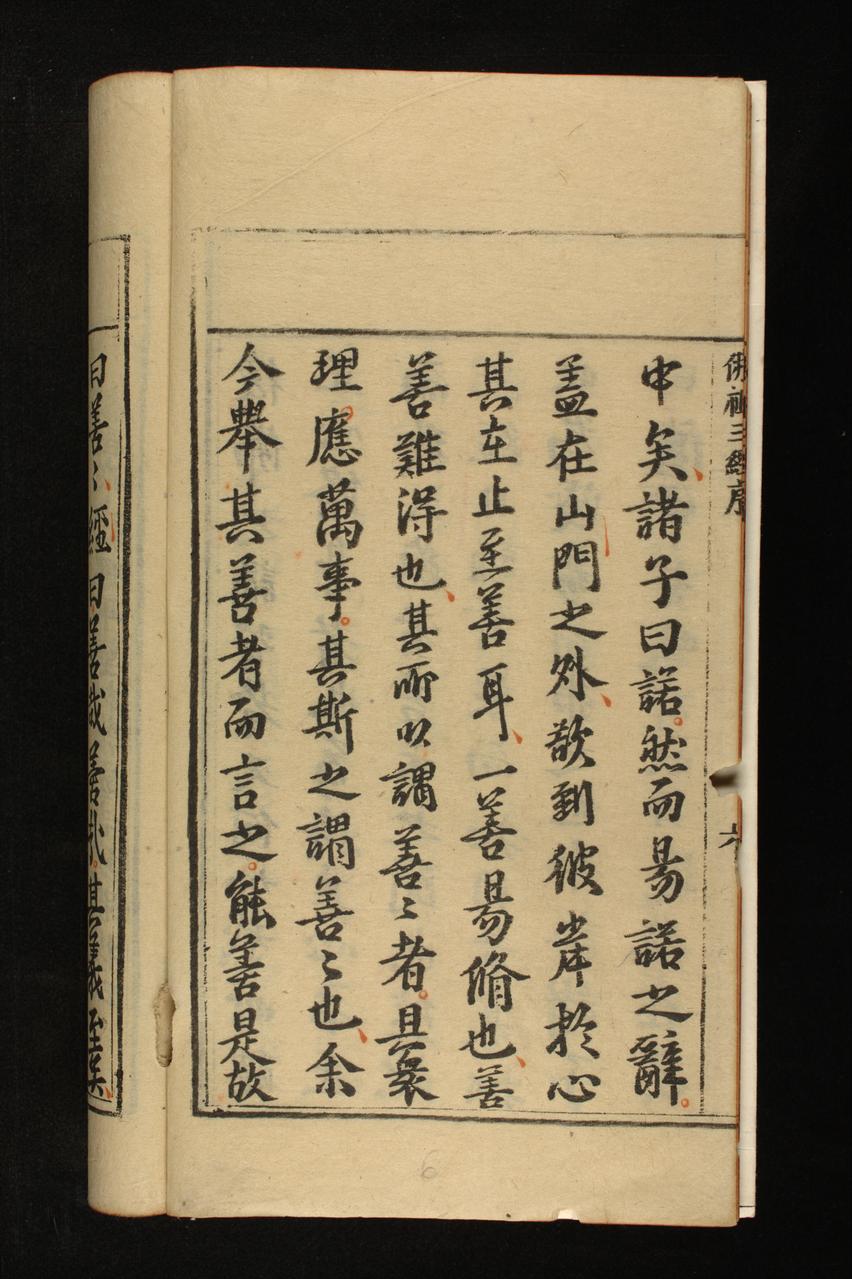 佛祖三經序
六
申矣諸子曰諾然而易諾之辭
盖在山門之外歆到彼岸於心
其在止至善耳一善易脩也善
善難得也其所以謂善〻者具衆
理應萬事其斯之謂善〻也余
今舉其善者而言之能善是故
曰善〻經曰善哉善哉其義至矣
6